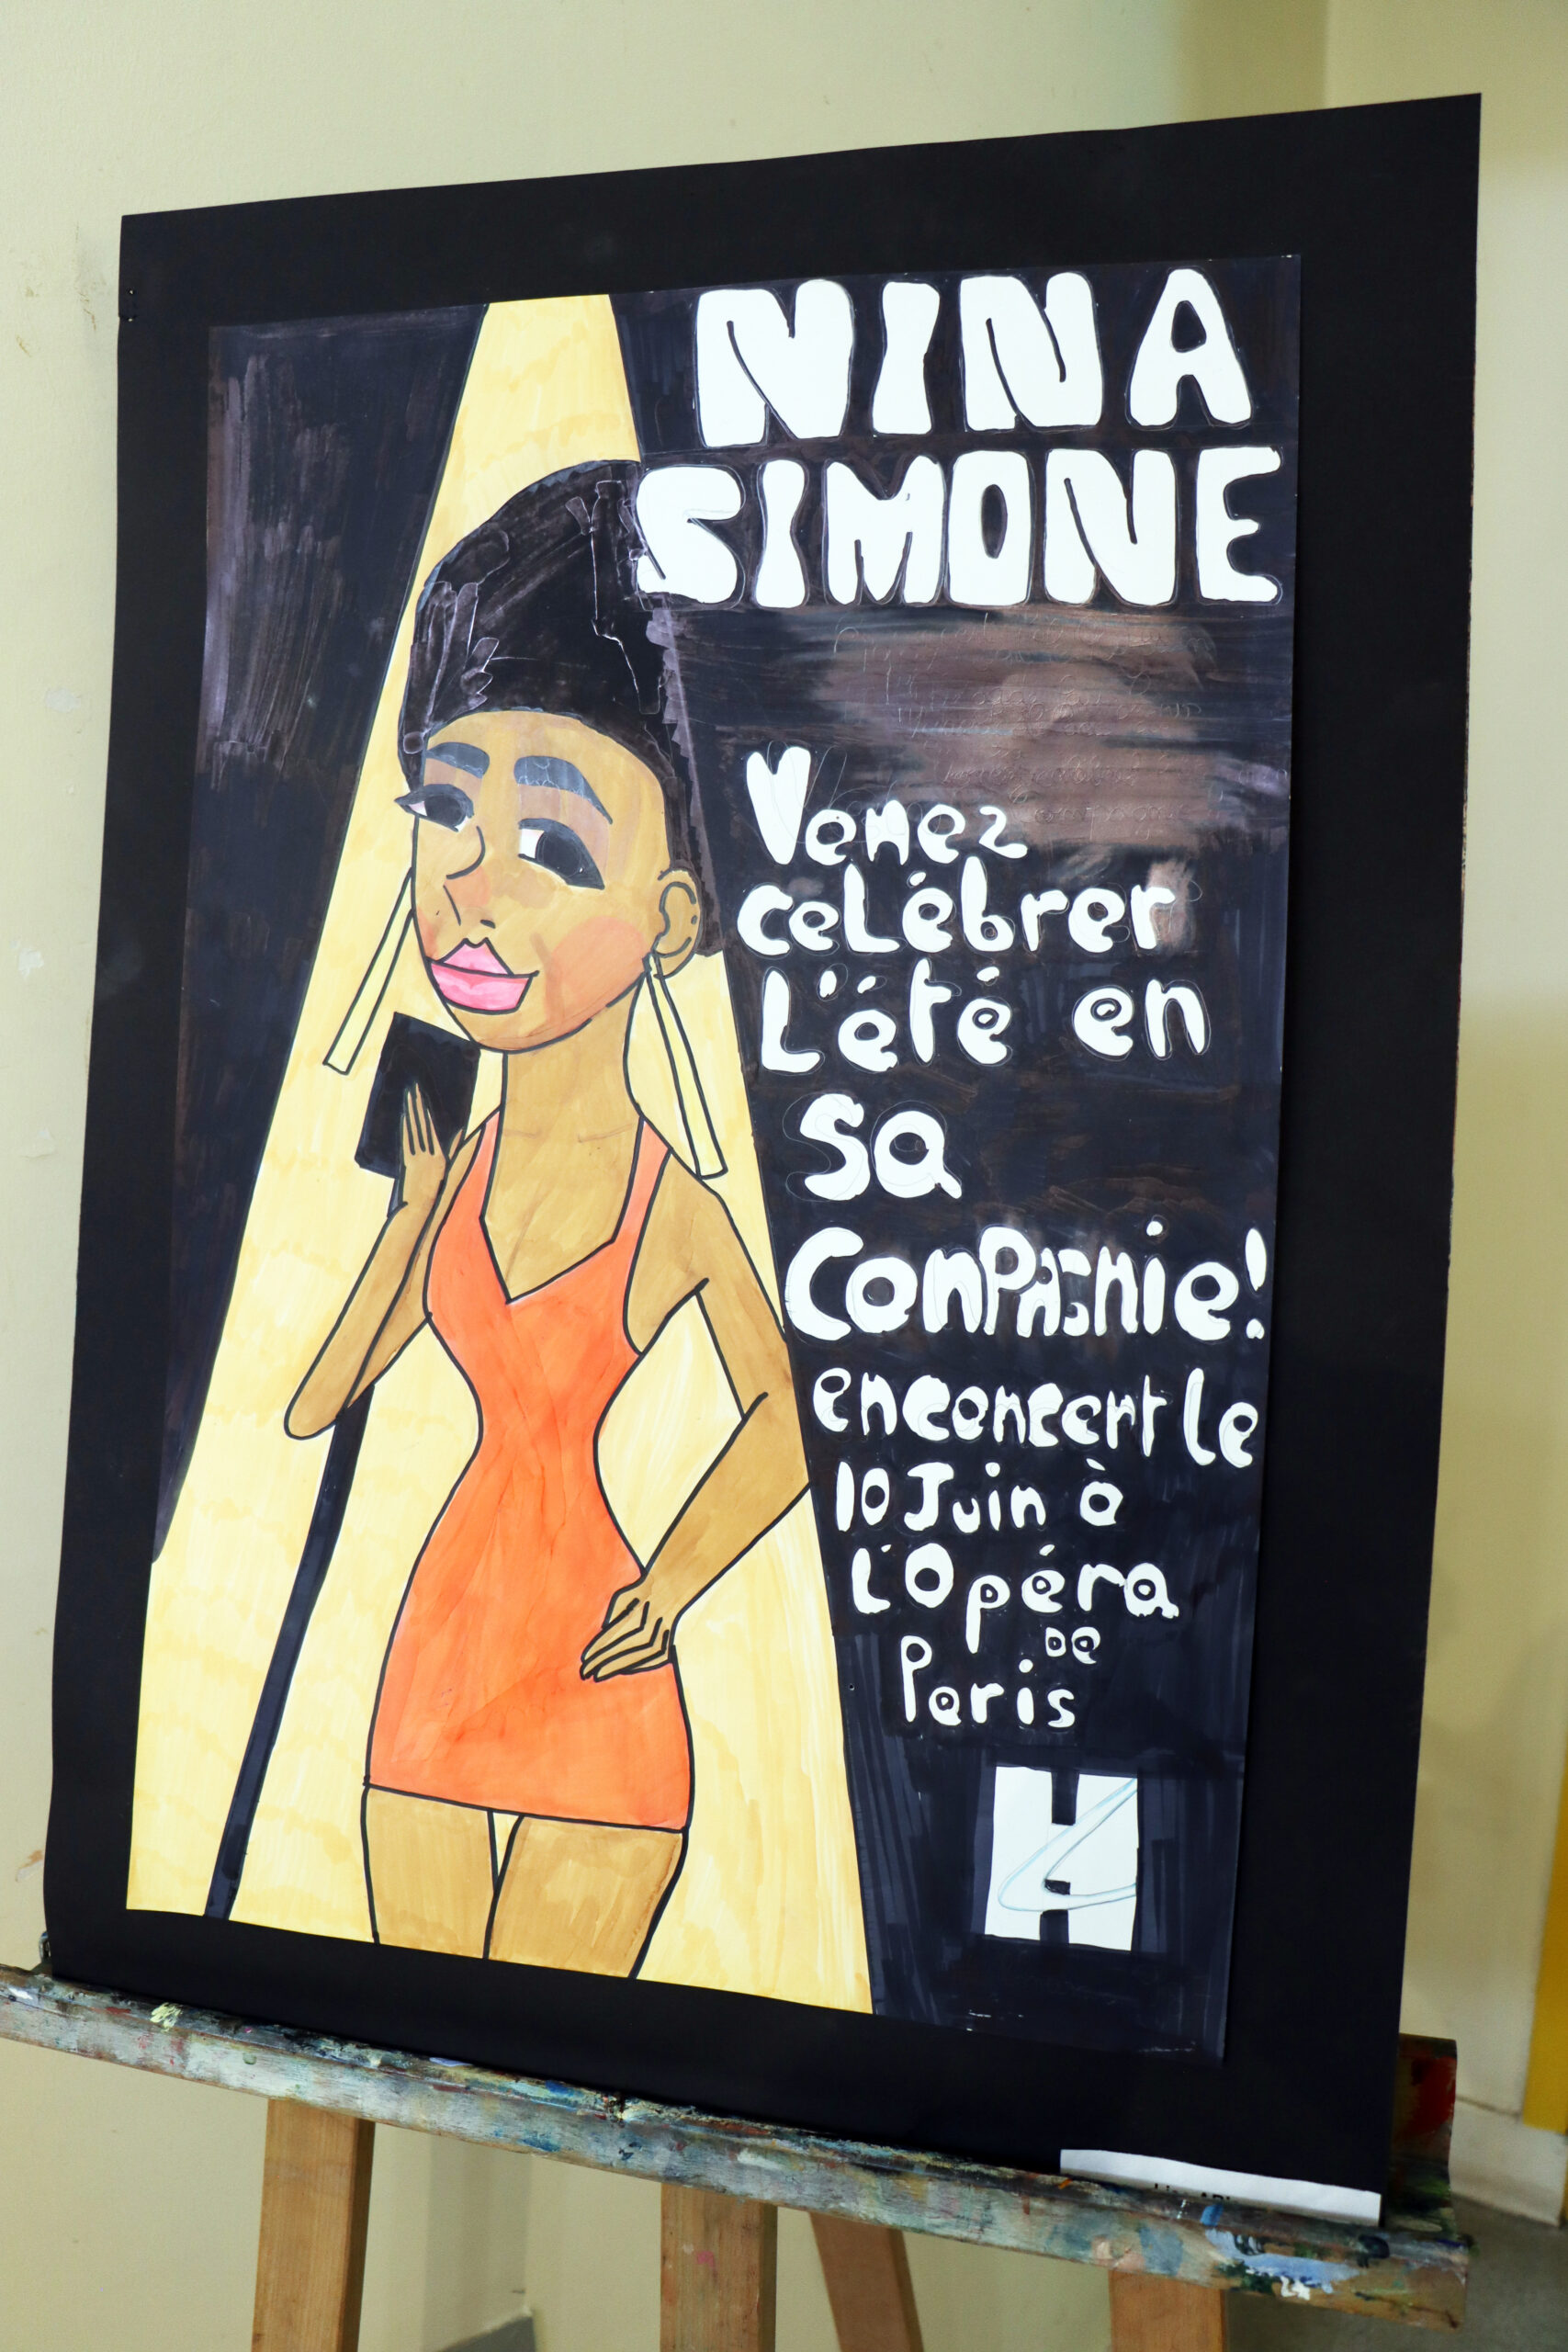 NINA
SIMONE
Venez
célébrer
l'été en
sa
comPAGnie!
en concert le
10 Juin à
l'Opéra
DE
Paris
H